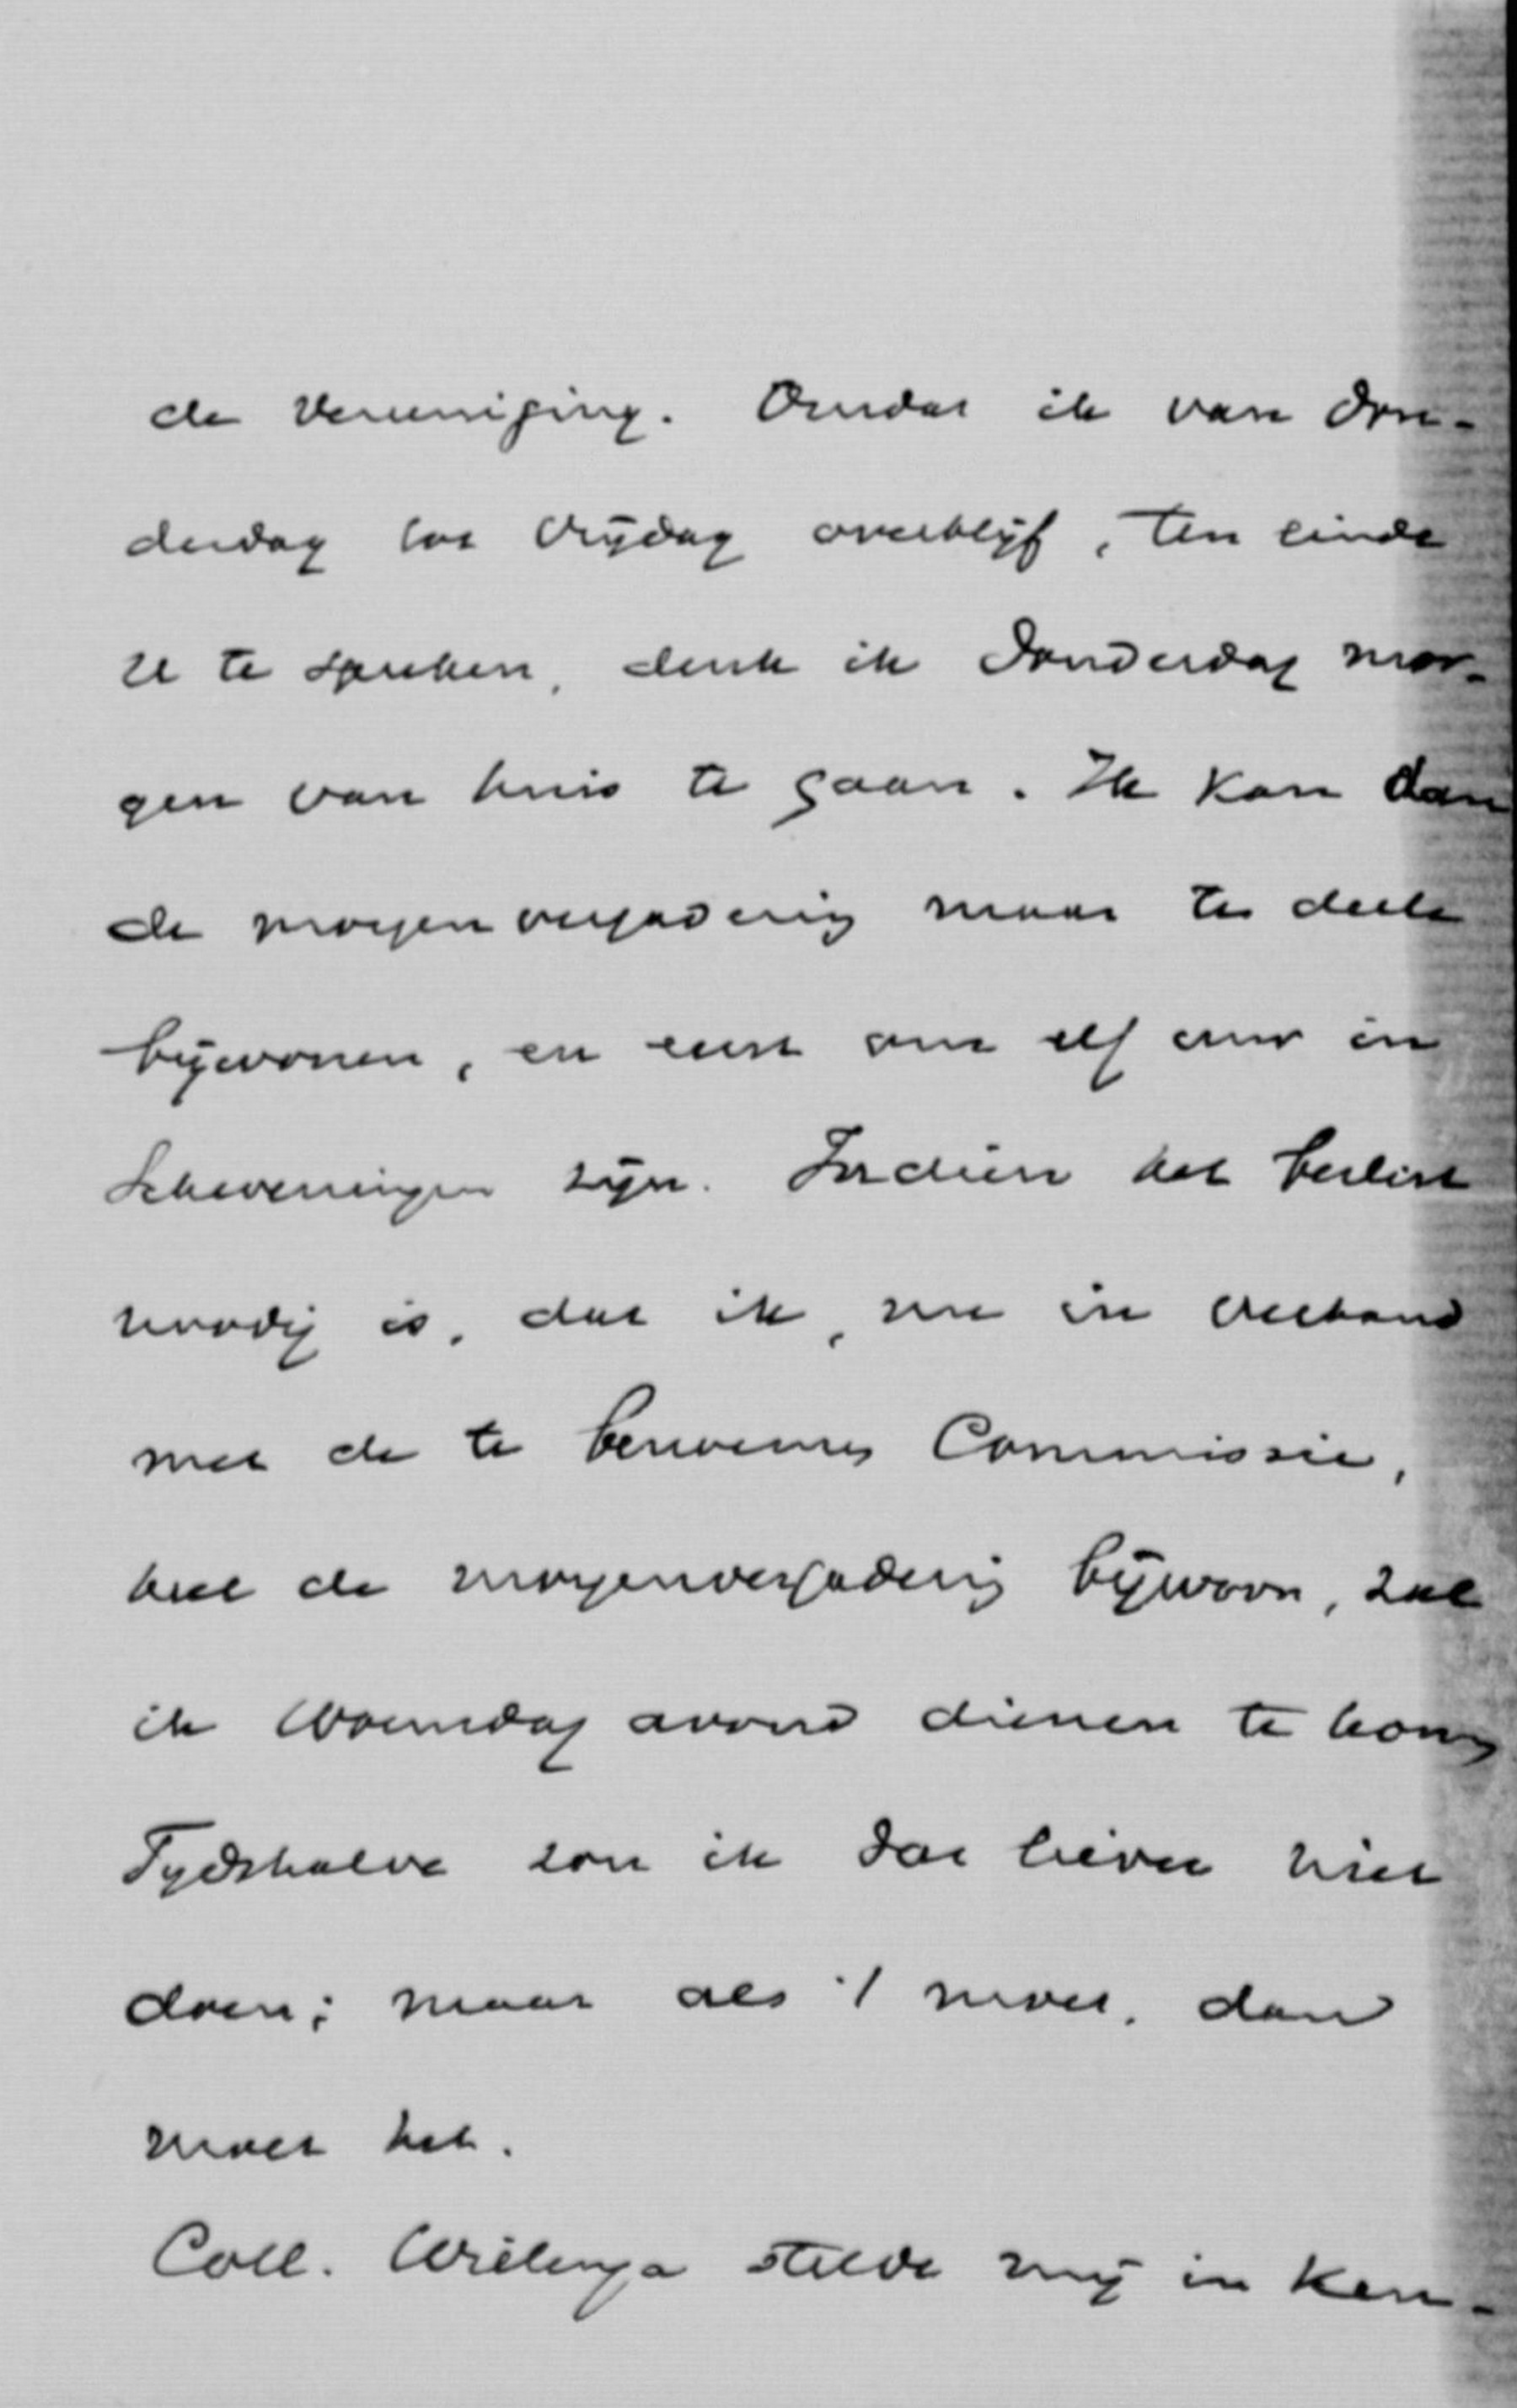 de Vereeniging. Omdat ik van Don-
derdag tot Vrijdag overblijf, ten einde
U te spreken, denk ik Donderdag mor-
gen van huis te gaan. Ik kan dan
de morgenvergadering maar ten deele
bijwonen, en eerst om elf uur in
Scheveningen zijn. Indien het beslist
noodig is, dat ik, nu in verband
met de te benoemen Commissie,
heel de morgenvergadering bijwoon, zal
ik Woensdag avond dienen te komen
Tydshalve zou ik dat liever niet
doen; maar als 't moet, dan
moet het.
Coll. Wielenga stelde mij in ken-